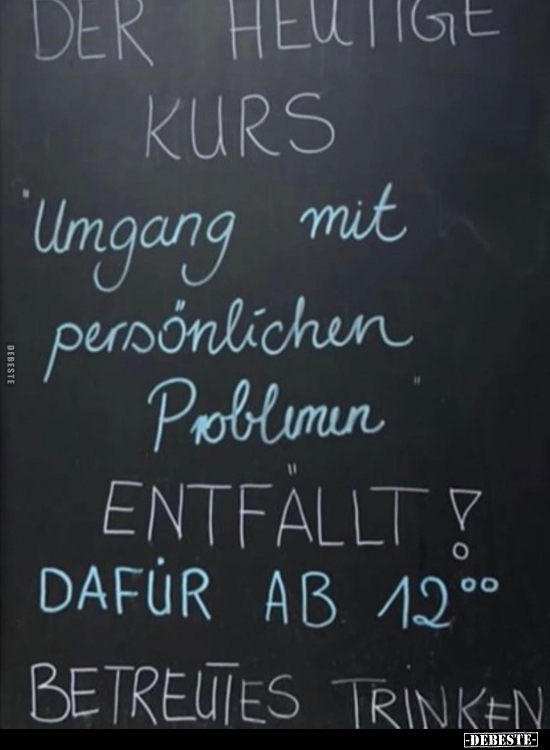 DER HEUTIGE
KURS
"Umgang mit
persönlichen
Problemen"
ENTFÄLLT!
DAFÜR AB 12⁰⁰
BETREUTES TRINKEN
DEBESTE
-DEBESTE-